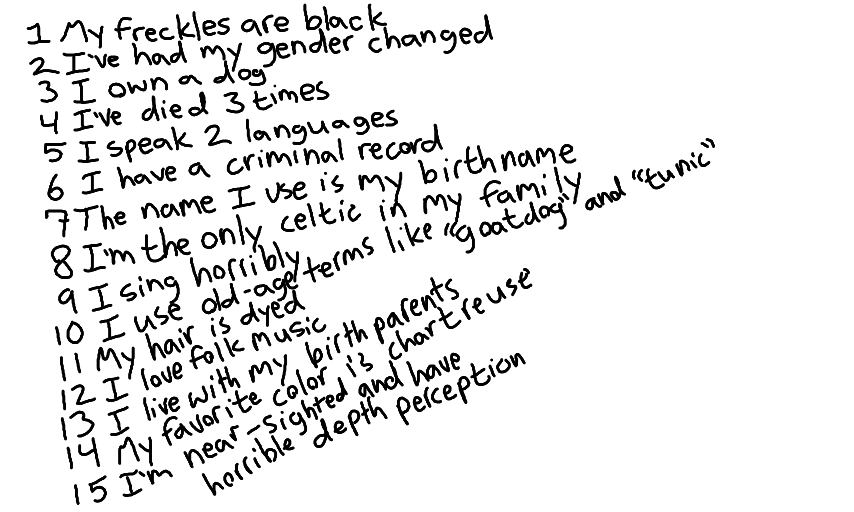 1 My freckles are black
2 I've had my gender changed
3 I own a dog
4 I've died 3 times
5 I speak 2 languages
6 I have a criminal record
7 The name I use is my birthname
8 I'm the only celtic in my family
9 I sing horribly
10 I use old-age terms like "goatdog" and "tunic"
11 My hair is dyed
12 I love folk music
13 I live with my birth parents
14 My favorite color is chartreuse
15 I'm near-sighted and have
horrible depth perception